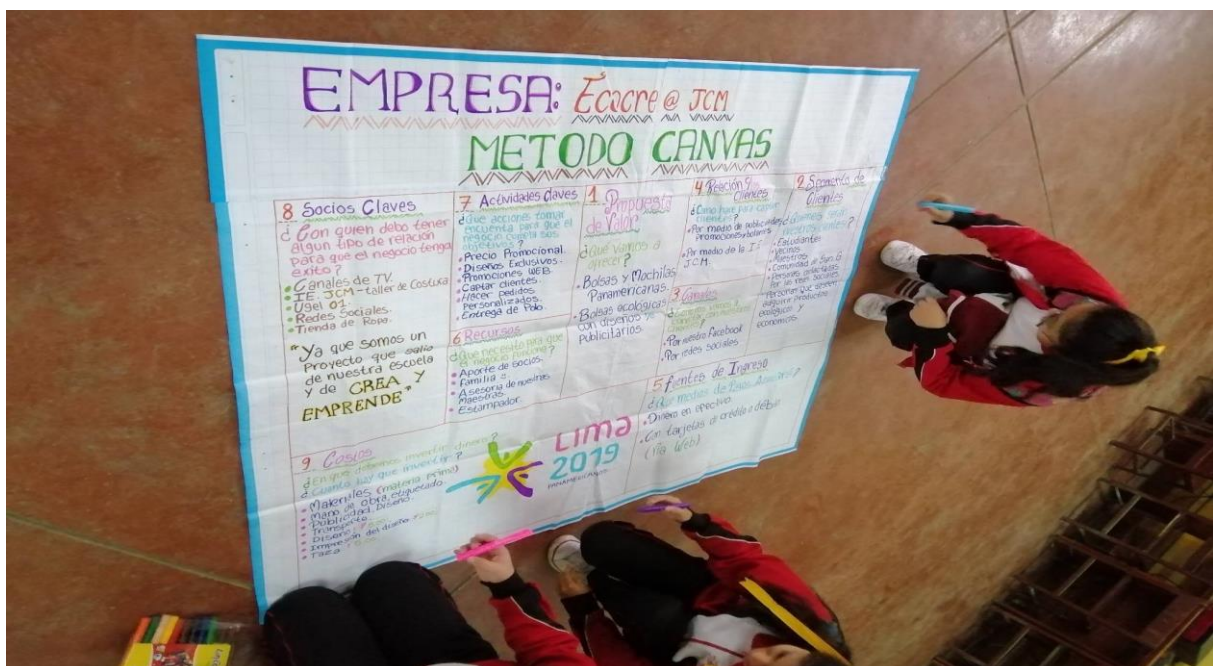 EMPRESA: Ecocre @ JCM
METODO CANVAS
8 Socios Claves
¿Con quien debo tener
algun tipo de relación
para que el negocio tenga
exito?
Canales de TV.
I.E. JCM - taller de Costura
Ugel 01.
Redes Sociales.
Tienda de Ropa.
"Ya que somos un
Proyecto que salio
de nuestra escuela
y de CREA Y
EMPRENDE"
7 Actividades Claves
¿Que acciones tomar
encuenta para que el
negocio cumpla sus
objetivos?
Precio Promocional.
Diseños Exclusivos.
Promociones WEB.
Captar clientes.
Hacer pedidos
Personalizados.
Entrega de Polo.
6 Recursos
¿Que necesito para que
el negocio funcione?
Aporte de socios.
Familia
Asesoria de nuestras
Maestras.
Estampador.
1. Propuesta
de Valor
¿Qué vamos a
ofrecer?
Bolsas y Mochilas
Panamericanas.
Bolsas ecológicas
con diseños
publicitarios
4 Reación
Clientes
¿Como hare para captar
clientes?
Por medio de publicidad
promociones
Por medio de la I.E
JCM.
3 Canales
Por nuestro Facebook
Por redes sociales
2 Segmento de
Clientes
¿Quienes serán
nuestros clientes?
Estudiantes
Vecinos
Maestros
Comunidad de
Personas contactadas
Por las redes sociales
Personas que deseen
adquirir productos
ecológicos y
economicos.
5 fentes de Ingreso
¿Por medios de
Dinero en efectivo.
Con tarjetas de crédito o debito
(Vía Web)
9 Costos
¿En que debemos invertir dinero?
¿Cuanto hay que invertir?
Materiales (materia prima)
Mano de obra, etiquetado.
Publicidad. Diseño.
Transporte.
Diseño:
Impresión del diseño
Taza
Lima
2019
PANAMERICANOS